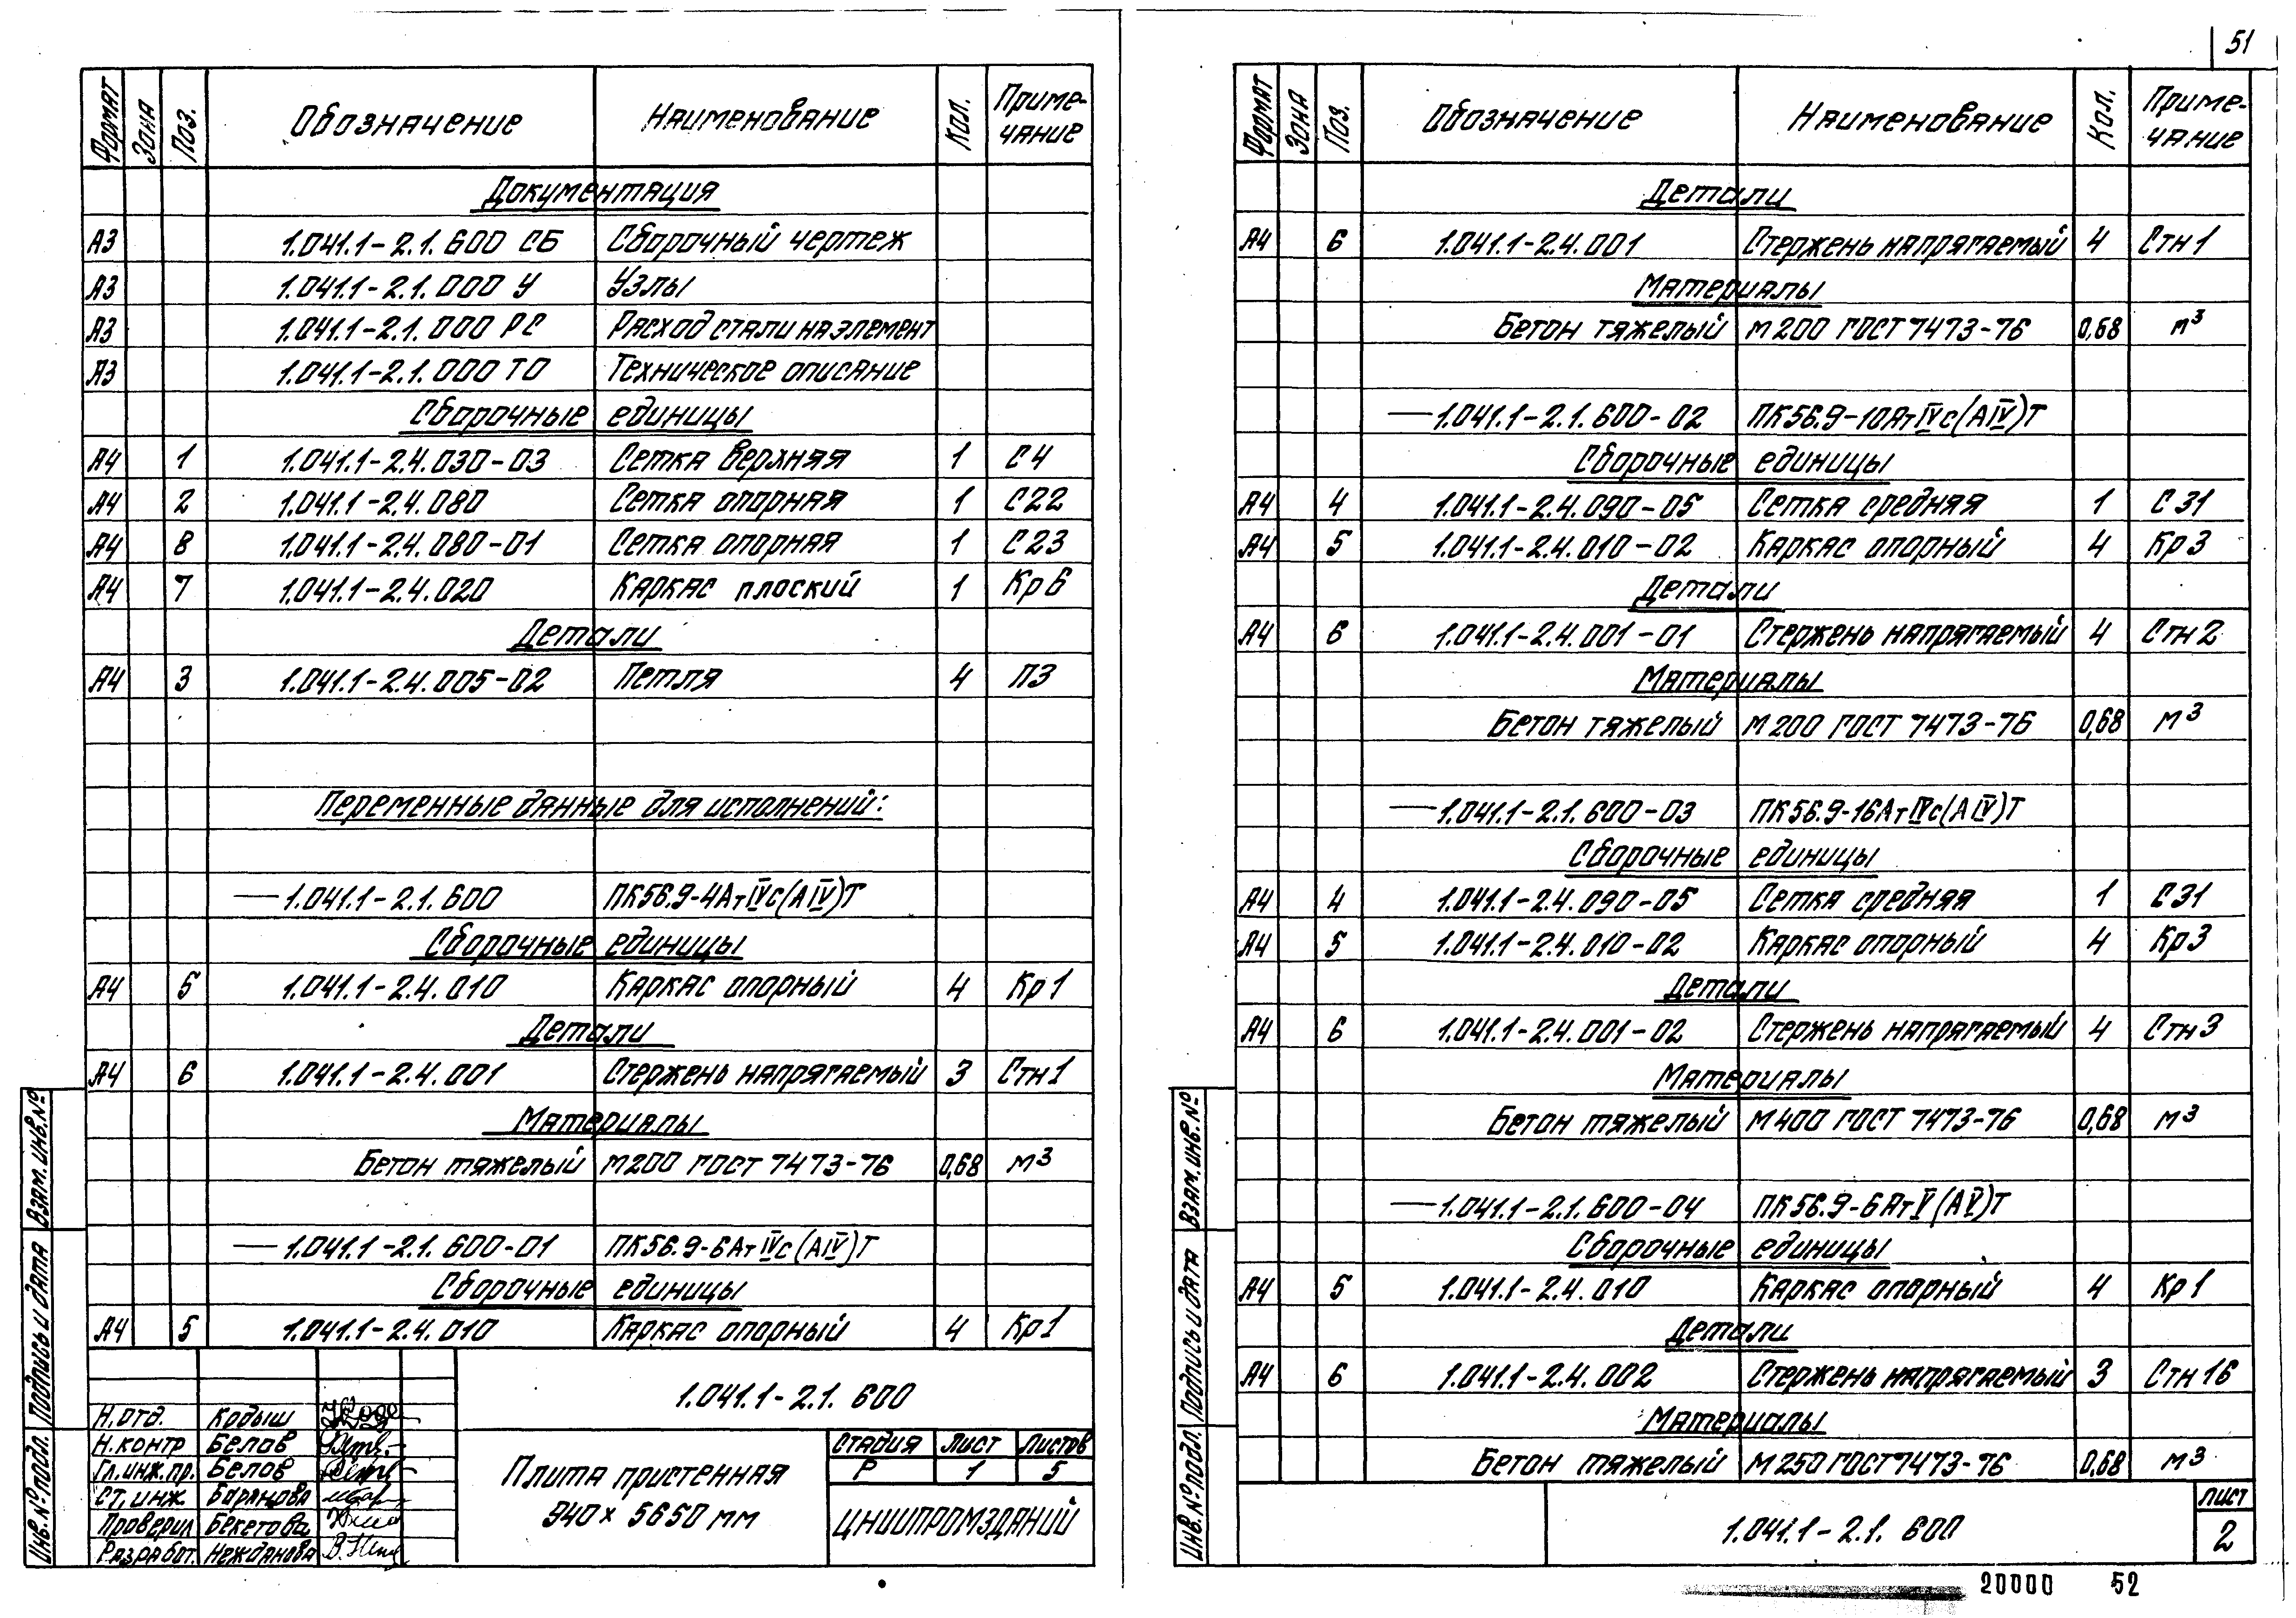 Формат Зона Поз. Обозначение Наименование Кол. Приме-
чание
Документация
А3 1.041.1-2.1.600 СБ Сборочный чертеж
А3 1.041.1-2.1.000 У Узлы
А3 1.041.1-2.1.000 РС Расход стали на элемент
А3 1.041.1-2.1.000 ТО Техническое описание
Сборочные единицы
А4 1 1.041.1-2.4.030-03 Сетка верхняя 1 С4
А4 2 1.041.1-2.4.080 Сетка опорная 1 С22
А4 8 1.041.1-2.4.080-01 Сетка опорная 1 С23
А4 7 1.041.1-2.4.020 Каркас плоский 1 Кр6
Детали
А4 3 1.041.1-2.4.005-02 Петля 4 П3
Переменные данные для исполнений:
— 1.041.1-2.1.600 ПК56.9-4АтIVс(АIV)Т
Сборочные единицы
А4 5 1.041.1-2.4.010 Каркас опорный 4 Кр1
Детали
А4 6 1.041.1-2.4.001 Стержень напрягаемый 3 Стн1
Материалы
Бетон тяжелый М200 ГОСТ 7473-76 0,68 м³
— 1.041.1-2.1.600-01 ПК56.9-6АтIVс(АIV)Т
Сборочные единицы
А4 5 1.041.1-2.4.010 Каркас опорный 4 Кр1
1.041.1-2.1.600
Н.отд. Кодыш
Н.контр Белов
Гл.инж.пр. Белов
Ст.инж Баранова
Проверил Бекетова
Разработ. Нежданова
Плита пристенная
940×5650 мм
Стадия Лист Листов
Р 1 5
ЦНИИПРОМЗДАНИЙ
Инв.№подл. Подпись и дата Взам.инв.№
51
Формат Зона Поз. Обозначение Наименование Кол. Приме-
чание
Детали
А4 6 1.041.1-2.4.001 Стержень напрягаемый 4 Стн1
Материалы
Бетон тяжелый М200 ГОСТ 7473-76 0,68 м³
— 1.041.1-2.1.600-02 ПК56.9-10АтIVс(АIV)Т
Сборочные единицы
А4 4 1.041.1-2.4.090-05 Сетка средняя 1 С31
А4 5 1.041.1-2.4.010-02 Каркас опорный 4 Кр3
Детали
А4 6 1.041.1-2.4.001-01 Стержень напрягаемый 4 Стн2
Материалы
Бетон тяжелый М200 ГОСТ 7473-76 0,68 м³
— 1.041.1-2.1.600-03 ПК56.9-16АтIVс(АIV)Т
Сборочные единицы
А4 4 1.041.1-2.4.090-05 Сетка средняя 1 С31
А4 5 1.041.1-2.4.010-02 Каркас опорный 4 Кр3
Детали
А4 6 1.041.1-2.4.001-02 Стержень напрягаемый 4 Стн3
Материалы
Бетон тяжелый М400 ГОСТ 7473-76 0,68 м³
— 1.041.1-2.1.600-04 ПК56.9-6АтV(АV)Т
Сборочные единицы
А4 5 1.041.1-2.4.010 Каркас опорный 4 Кр1
Детали
А4 6 1.041.1-2.4.002 Стержень напрягаемый 3 Стн16
Материалы
Бетон тяжелый М250 ГОСТ 7473-76 0,68 м³
1.041.1-2.1.600
Лист
2
Инв.№подл. Подпись и дата Взам.инв.№
20000 52